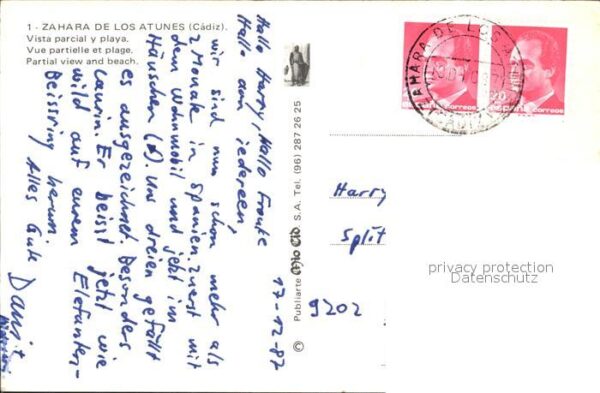 1 - ZAHARA DE LOS ATUNES (Cádiz).
Vista parcial y playa.
Vue partielle et plage.
Partial view and beach.
17-12-87
Hallo Harry, Hallo Frouke
Hallo am iedereen
wir sind nun schon mehr als
2 Monate in Spanien, zuerst mit
dem Wohnmobil und jetzt im
Häuschen (A). Uns dreien gefällt
es ausgezeichnet. Besonders
Laurin. Er beisst jetzt wie
wild auf eurem Elefanten-
Beissring herum.
Alles Gute
© Publiarte Mio Cid S.A. Tel. (96) 287 26 25
ZAHARA DE LOS
España correos
20
España correos
Harry
Split
9202
privacy protection
Datenschutz